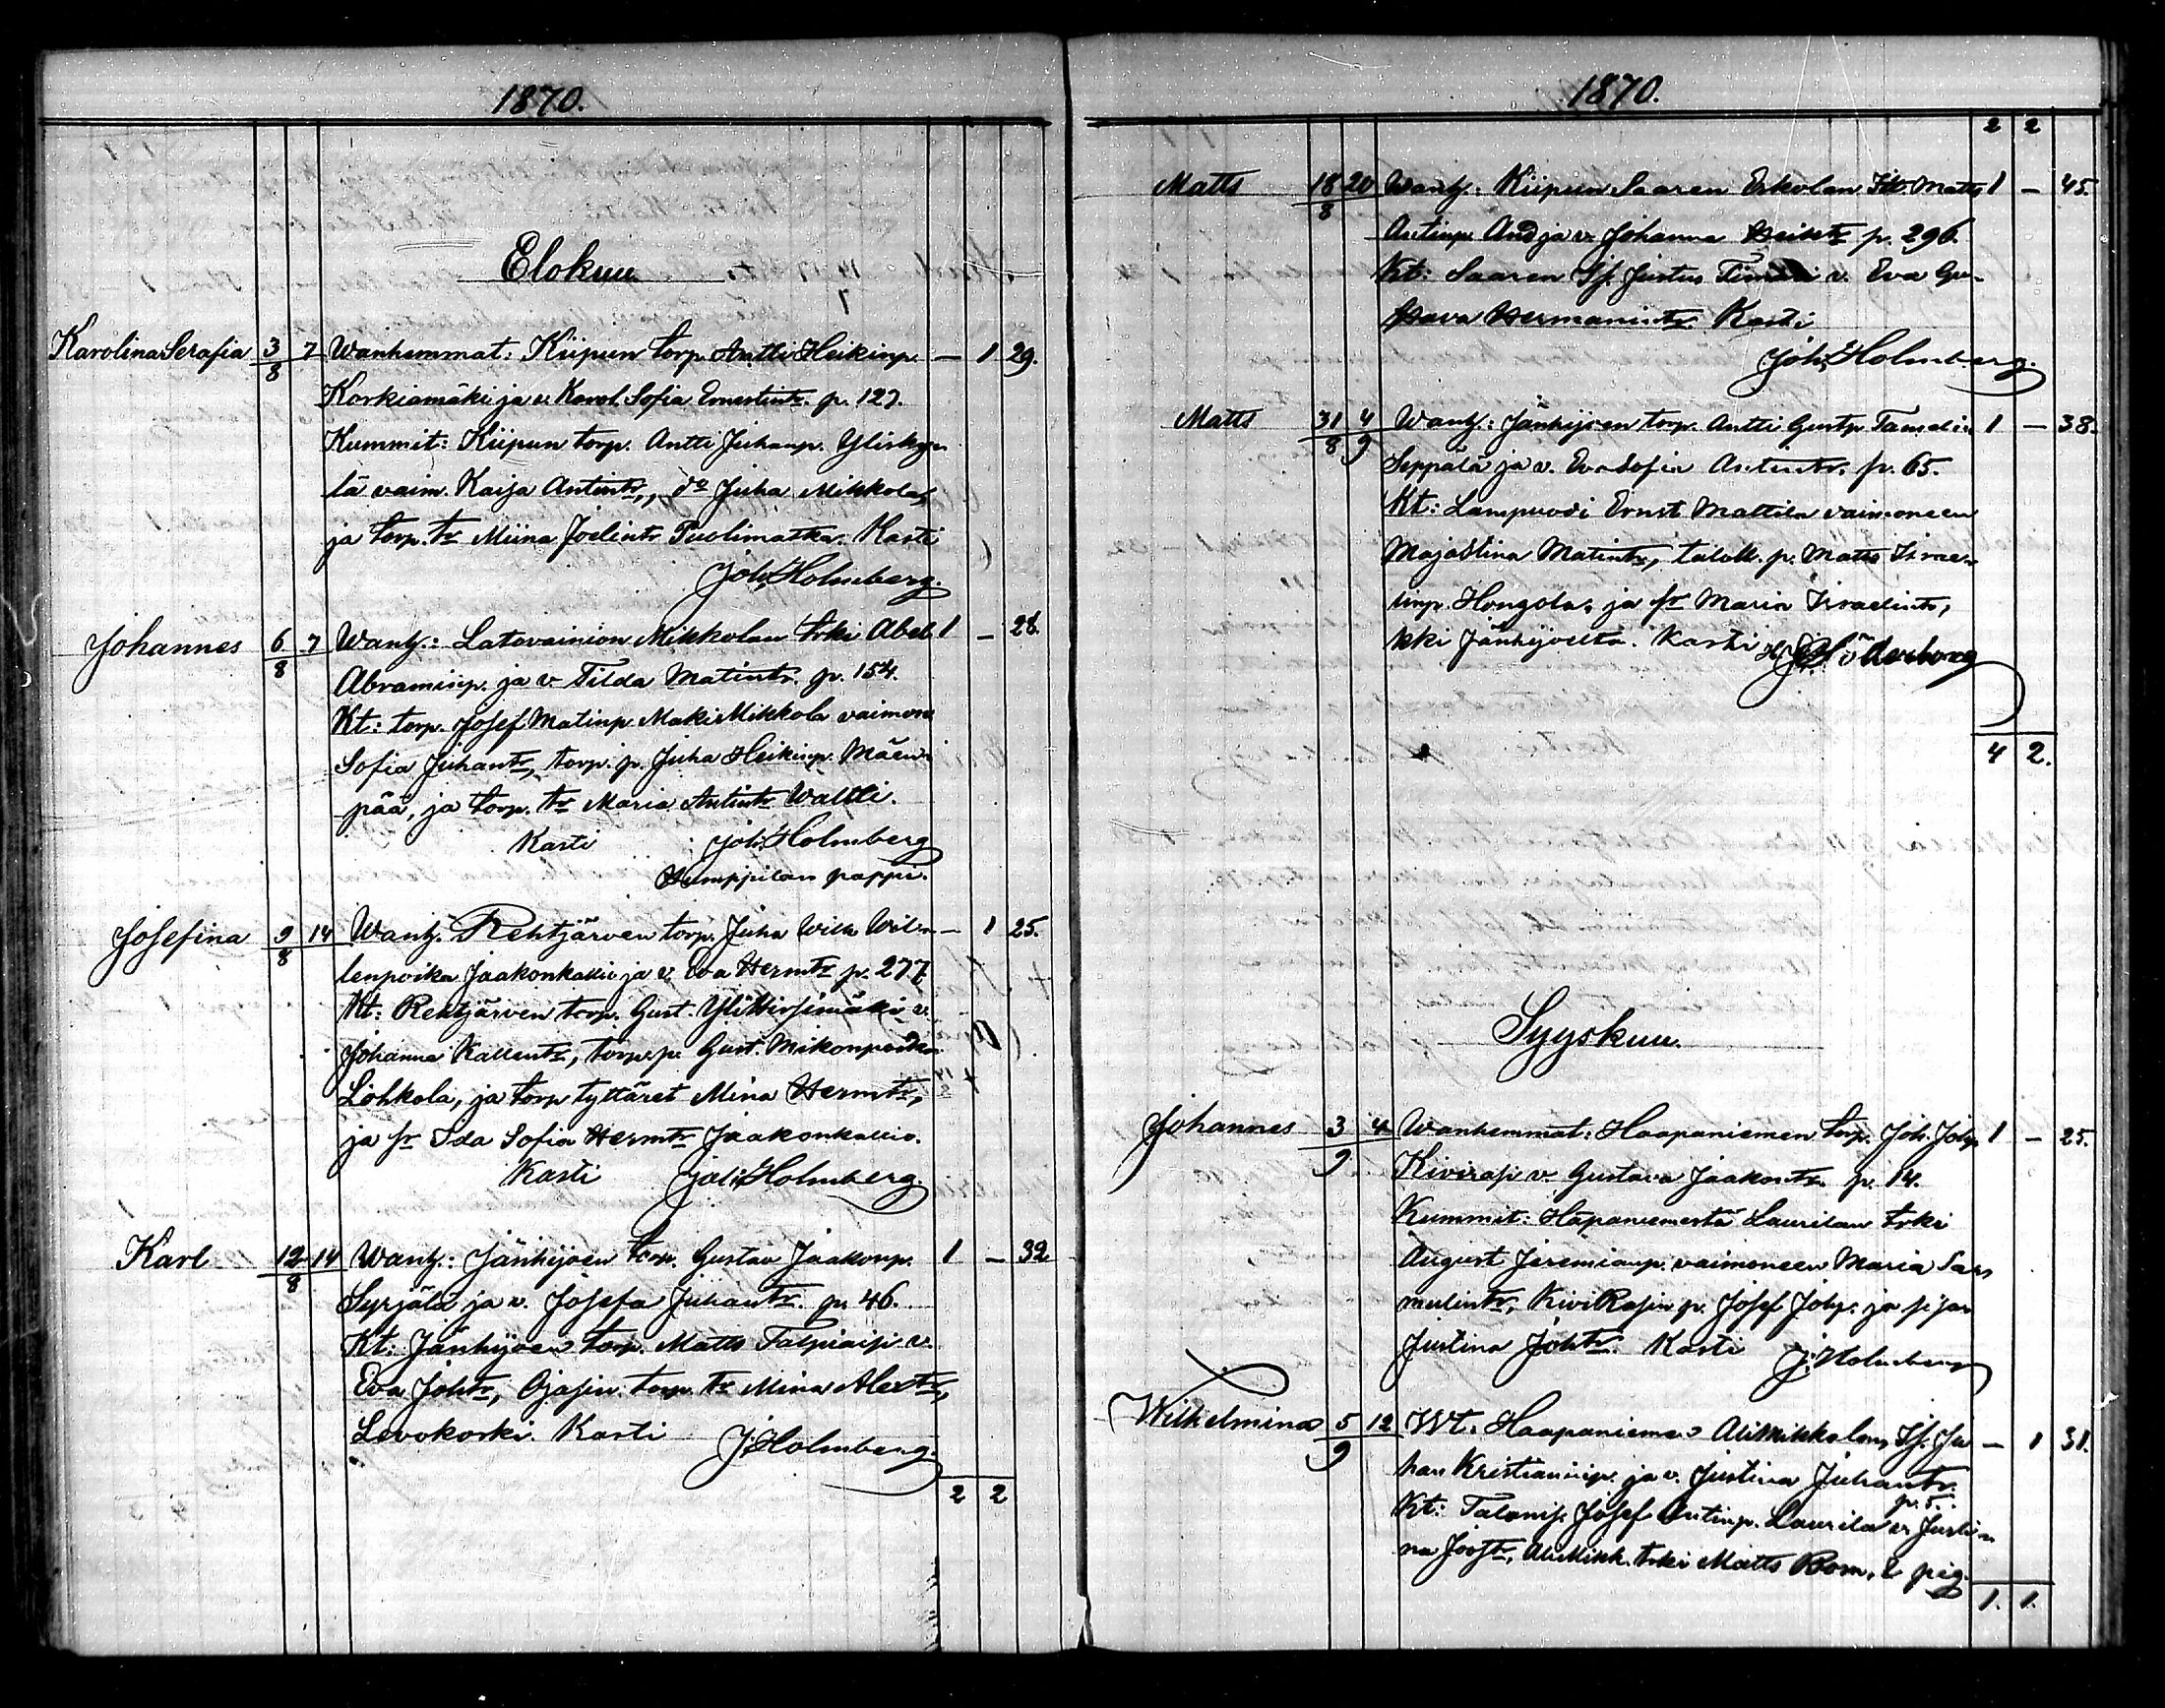 1870.
Elokuu
Karolina Serafia 3/8 7 Wanhemmat: Kiipun torp. Antti Heikinp. — 1 29.
Korkiamäki ja v. Karol. Sofia Ernestintr. p. 127.
Kummit: Kiipun torp. Antti Juhanp. Ylisky-
lä vaim. Kaija Antintr, do Juha Mikkola,
ja torp. tr Miina Joelintr Puolimatka. Kasti
Joh. Holmberg.
Johannes 6/8 7 Wanh.: Latovainion Mikkolan trki Abel 1 — 28.
Abraminp. ja v. Tilda Matintr. p. 154.
Kt: torp. Josef Matinp. MäkiMikkola vaimon
Sofia Juhantr, torp. p. Juha Heikinp. Mäen-
pää, ja torp. tr Maria Antintr Waltti.
Kasti Joh. Holmberg
Humppilan pappi.
Josefina 9/8 14 Wanh. Rehtjärven torp. Juha Wilh. Wil- — 1 25.
lenpoika Jaakonkallio ja v. Eva Hermtr p. 277.
Kt: Rehtjärven torp. Gust. v.
Johanna Kallentr, torp. p. Gust. Mikonpoika
Löhkola, ja torp tyttäret Mina Hermtr,
ja pr Ida Sofia Hermtr Jaakonkallio.
Kasti Joh. Holmberg.
Karl 12/8 14 Wanh.: Jänhijoen torp. Gustav Jaakonp. 1 — 32
Syrjälä ja v. Josefa Juhantr. p. 46.
Kt: Jänhijoen torp. Matts Talpiaisi v.
Eva Johtr, Ojasin torp. tr Mina Alextr,
Levokoski. Kasti J. Holmberg.
2 2
1870.
2 2
Matts 18/8 20 Wanh.: Kiipun Saaren Eskolan Matts 1 — 45.
Antinp. And ja v. Johanna Heiktr p. 296.
Kt: Saaren Justus v. Eva Gu-
stava Hermanintr Kasti
Joh. Holmberg.
Matts 31/8 4/9 Wanh: Jänhijoen torp. Antti Gustp. Tamelin 1 — 38.
Seppälä ja v. Eva Sofia Antintr. p. 65.
Kt: Lampuodi Ernst Mattila vaimoneen
Maja Stina Matintr, taloll. p. Matts Israe-
linp. Hongola, ja pr Maria Israelintr,
kki Jänhijoelta. Kasti Söderborg
4 2.
Syyskuu.
Johannes 3/9 4 Wanhemmat: Haapaniemen torp. Joh. Johp. 1 — 25.
Kivirasi v. Gustava Jaakontr. p. 14.
Kummit: Hapaniemestä Laurilan trki
August Jeremianp. vaimoneen Maria Sa-
mulintr, KiviRasin p. Josef Johp. ja piian
Justina Johtr. Kasti J. Holmberg
Wilhelmina 5/9 12 Wt. Haapanieme AliMikkolan, Ju- — 1 31.
han Kristianinp. ja v. Justina Juhantr.
p. 5.
Kt: Talonis. Josef Antinp. Laurila v. Justi-
na Jooptr, AliMikk. trki Matts Bom, & pig.
1. 1.